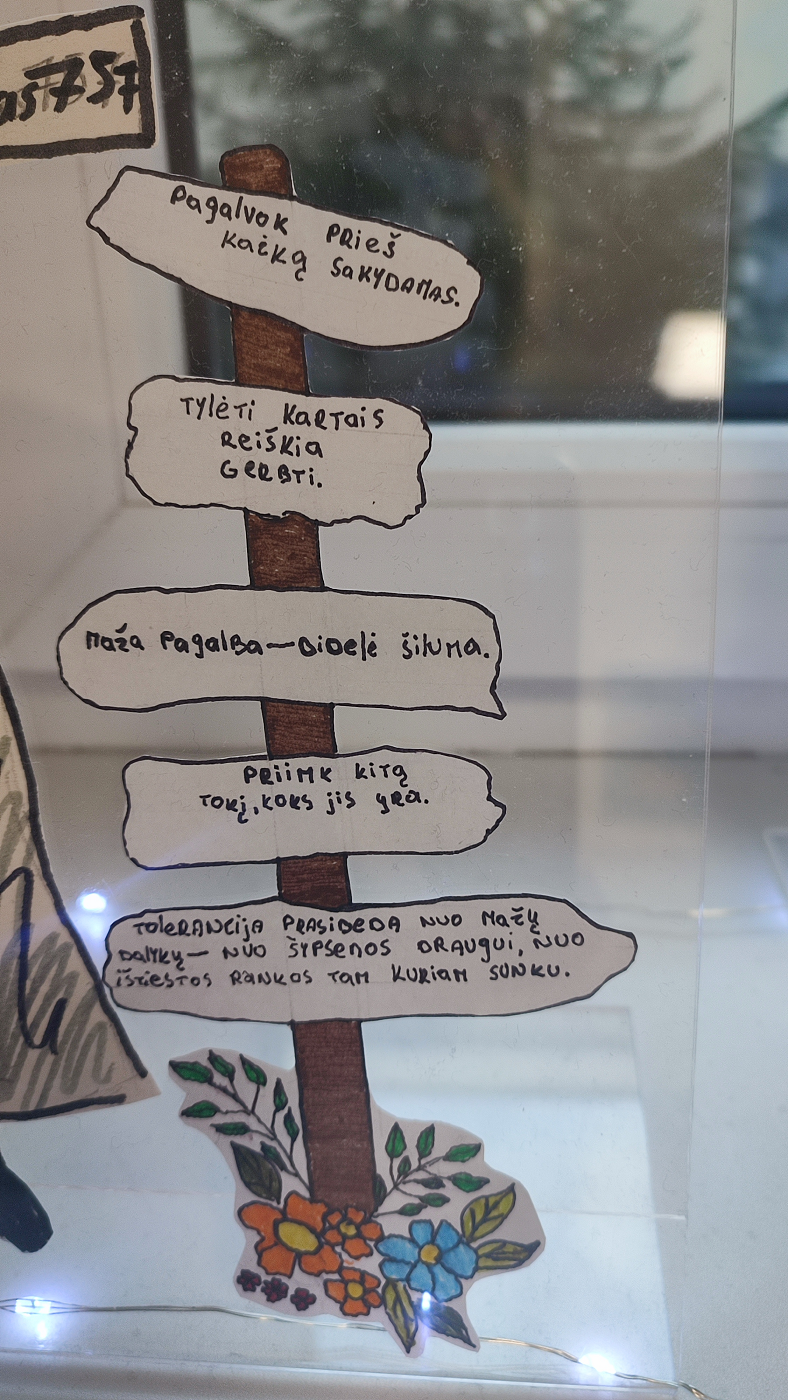 as757
Pagalvok prieš
kažką sakydamas.
Tylėti kartais
reiškia
gerbti.
Maža pagalba—didelė šiluma.
Priimk kitą
tokį, koks jis yra.
Tolerancija prasideda nuo mažų
dalykų— nuo šypsenos draugui, nuo
ištiestos rankos tam kuriam sunku.